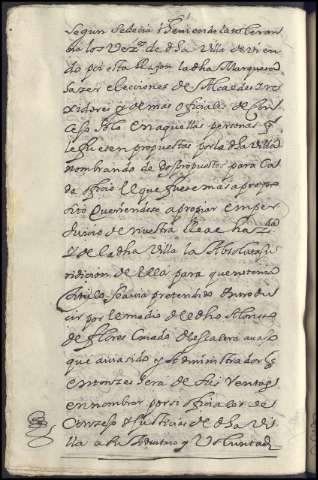 Segun se debia y heniendo la toleran
bia los Vez.os de dha Villa deviien
do por esta Razon la dha Marquesa
hazer elecciones de Alcaldes Re
xidores y demas oficiales de Con
cejo solo en aquellas personas q
le fuesen propuestas por la dha Villa
nombrando de dos propuestos para ca
da oficio el que fuese mas a propo
sito queriendose apropiar en per
Juicio de nuestra Real ha.da
y de la dha Villa la absoluta Ju
ridicion de ella para que no tenia
titulo havia pretendido introdu
cir por el medio de el dho Alonso
de Flores Conedo Abescatero a uso
que avia sido y Administrador q
entonzes era de sus Rentas
en nombrar por si oficiales de
Conzejo y Justicias de dha Vi
lla a su advitrio y Voluntad